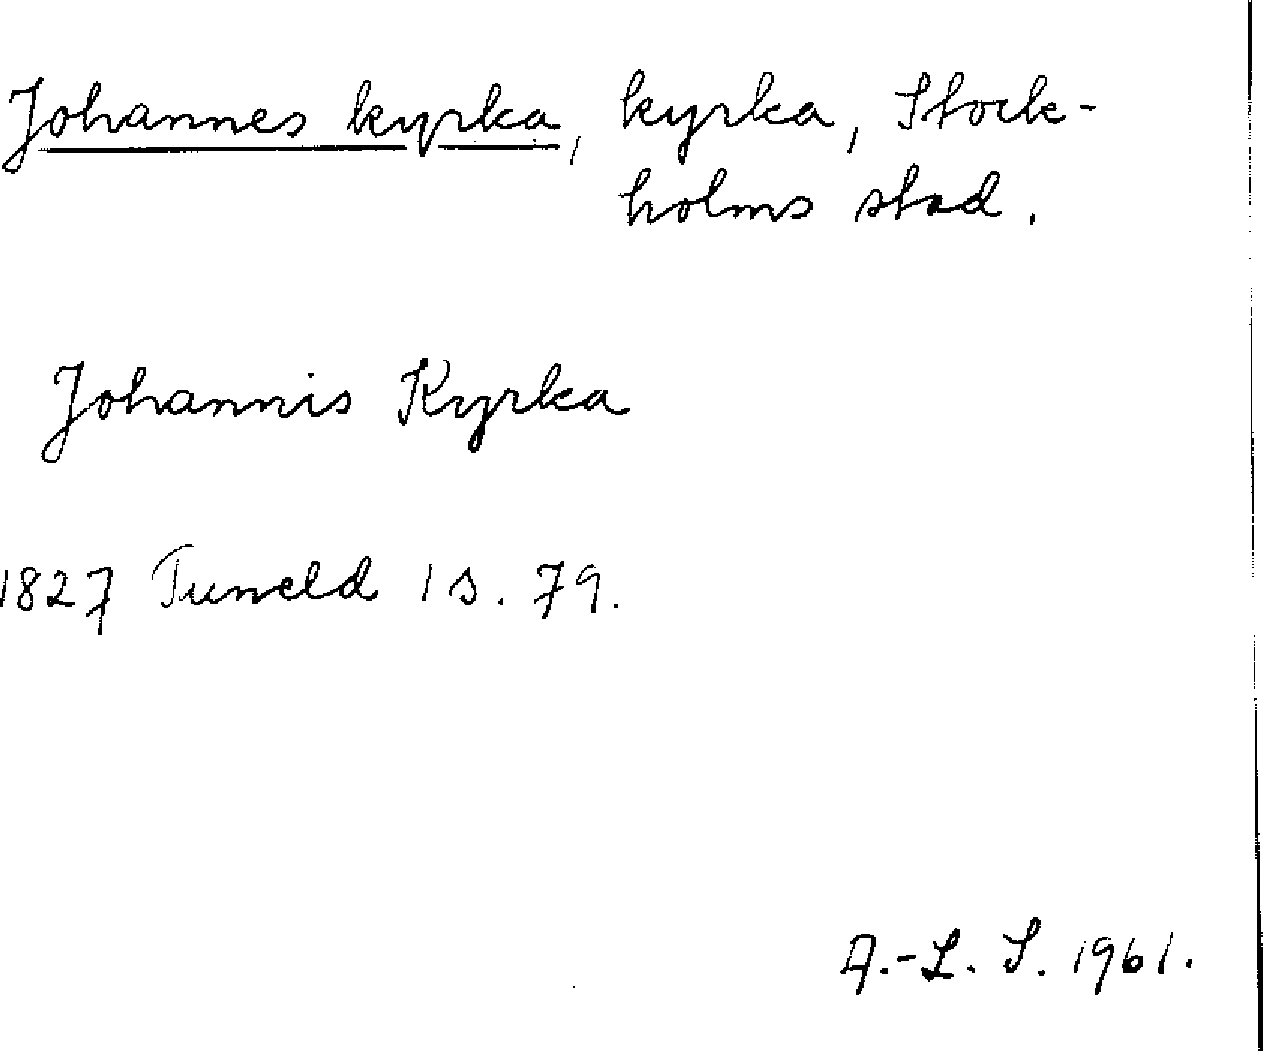 Johannes kyrka, kyrka, Stock-
holms stad.
Johannis Kyrka
1827 Tuneld 1 s. 79.
A.-L. S. 1961.